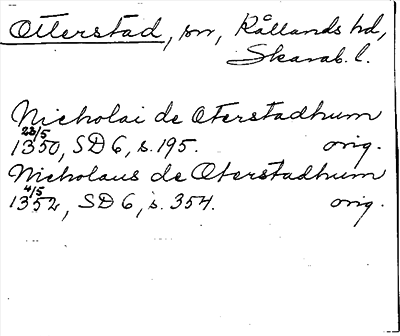 Otterstad, sn, Kållands hd,
Skarab. l.
Nicholai de Oterstadhum
23/5
1350, SD 6, s. 195. orig.
Nicholaus de Oterstadhum
4/5
1352, SD 6, s. 354. orig.